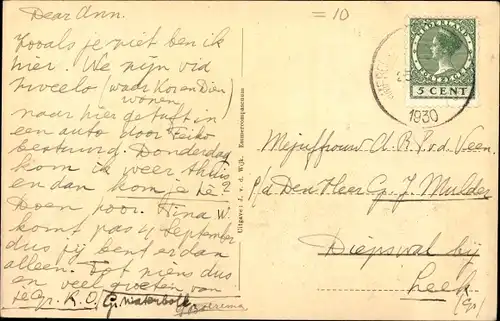 = 10
Dear Ann.
Zooals je ziet ben ik
hier. We zijn v/d
(waar Kor en Dien
wonen)
naar hier getuft in
een auto door Feiko
bestuurd. Donderdag
kom ik weer thuis
en dan kom je te?
Doen hoor. Hina W.
komt pas 4 September
dus jij bent er dan
alleen. Tot ziens dus
en veel groeten van
je Gp. R. O. Gr. Waterbolk
Uitgave: J. v. d. Wijk, Emmercompascuum
NEDERLAND
5 CENT
1930
Mejuffrouw A. R. P. v.d. Veen.
p/a Den Heer Gp. J. Mulder
Diepswal bij
Leek
(Gr)